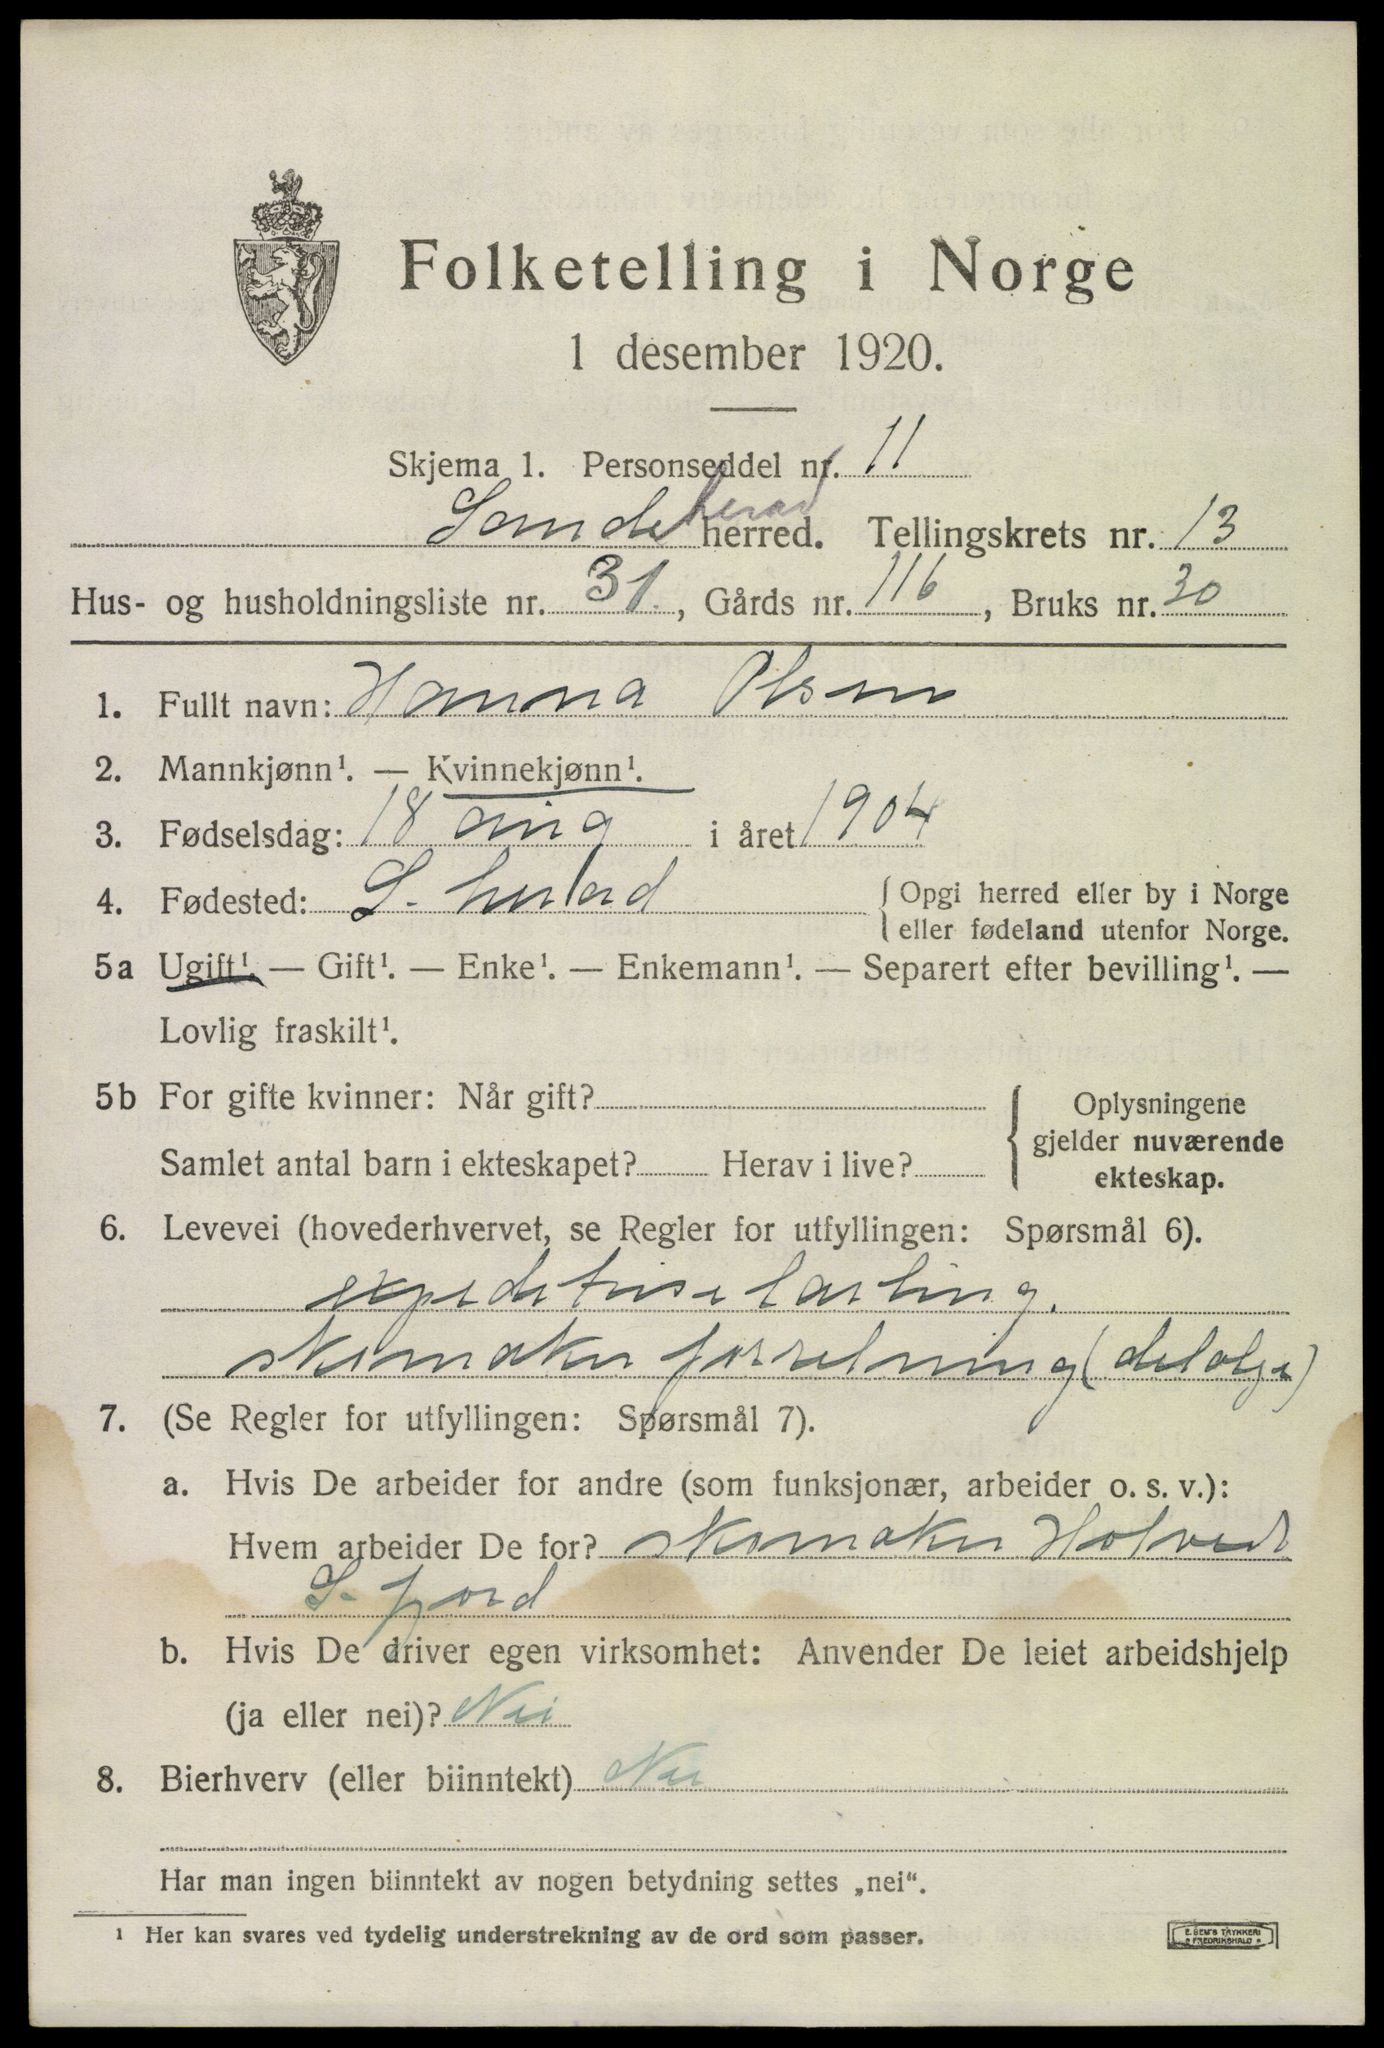 Folketelling i Norge
1 desember 1920.
Skjema 1. Personseddel nr. 11
Sande herad herred. Tellingskrets nr. 13
Hus- og husholdningsliste nr. 31., Gårds nr. 116, Bruks nr. 30
1. Fullt navn: Hanna Olsen
2. Mannkjønn¹. — Kvinnekjønn¹.
3. Fødselsdag: 18 aug i året 1904
4. Fødested: S. herad { Opgi herred eller by i Norge
eller fødeland utenfor Norge.
5a Ugift¹. — Gift¹. — Enke¹. — Enkemann¹. — Separert efter bevilling¹. —
Lovlig fraskilt¹.
5b For gifte kvinner: Når gift?
Samlet antal barn i ekteskapet? Herav i live?
{ Oplysningene
gjelder nuværende
ekteskap.
6. Levevei (hovederhvervet, se Regler for utfyllingen: Spørsmål 6).
expeditrise lærling.
skomaker forretning (
7. (Se Regler for utfyllingen: Spørsmål 7).
a. Hvis De arbeider for andre (som funksjonær, arbeider o. s. v.):
Hvem arbeider De for? skomaker Holvedt
S. fjord
b. Hvis De driver egen virksomhet: Anvender De leiet arbeidshjelp
(ja eller nei)? Nei
8. Bierhverv (eller biinntekt) Nei
Har man ingen biinntekt av nogen betydning settes „nei".
¹ Her kan svares ved tydelig understrekning av de ord som passer.
E. SEM'S TRYKKERI
FREDRIKSHALD